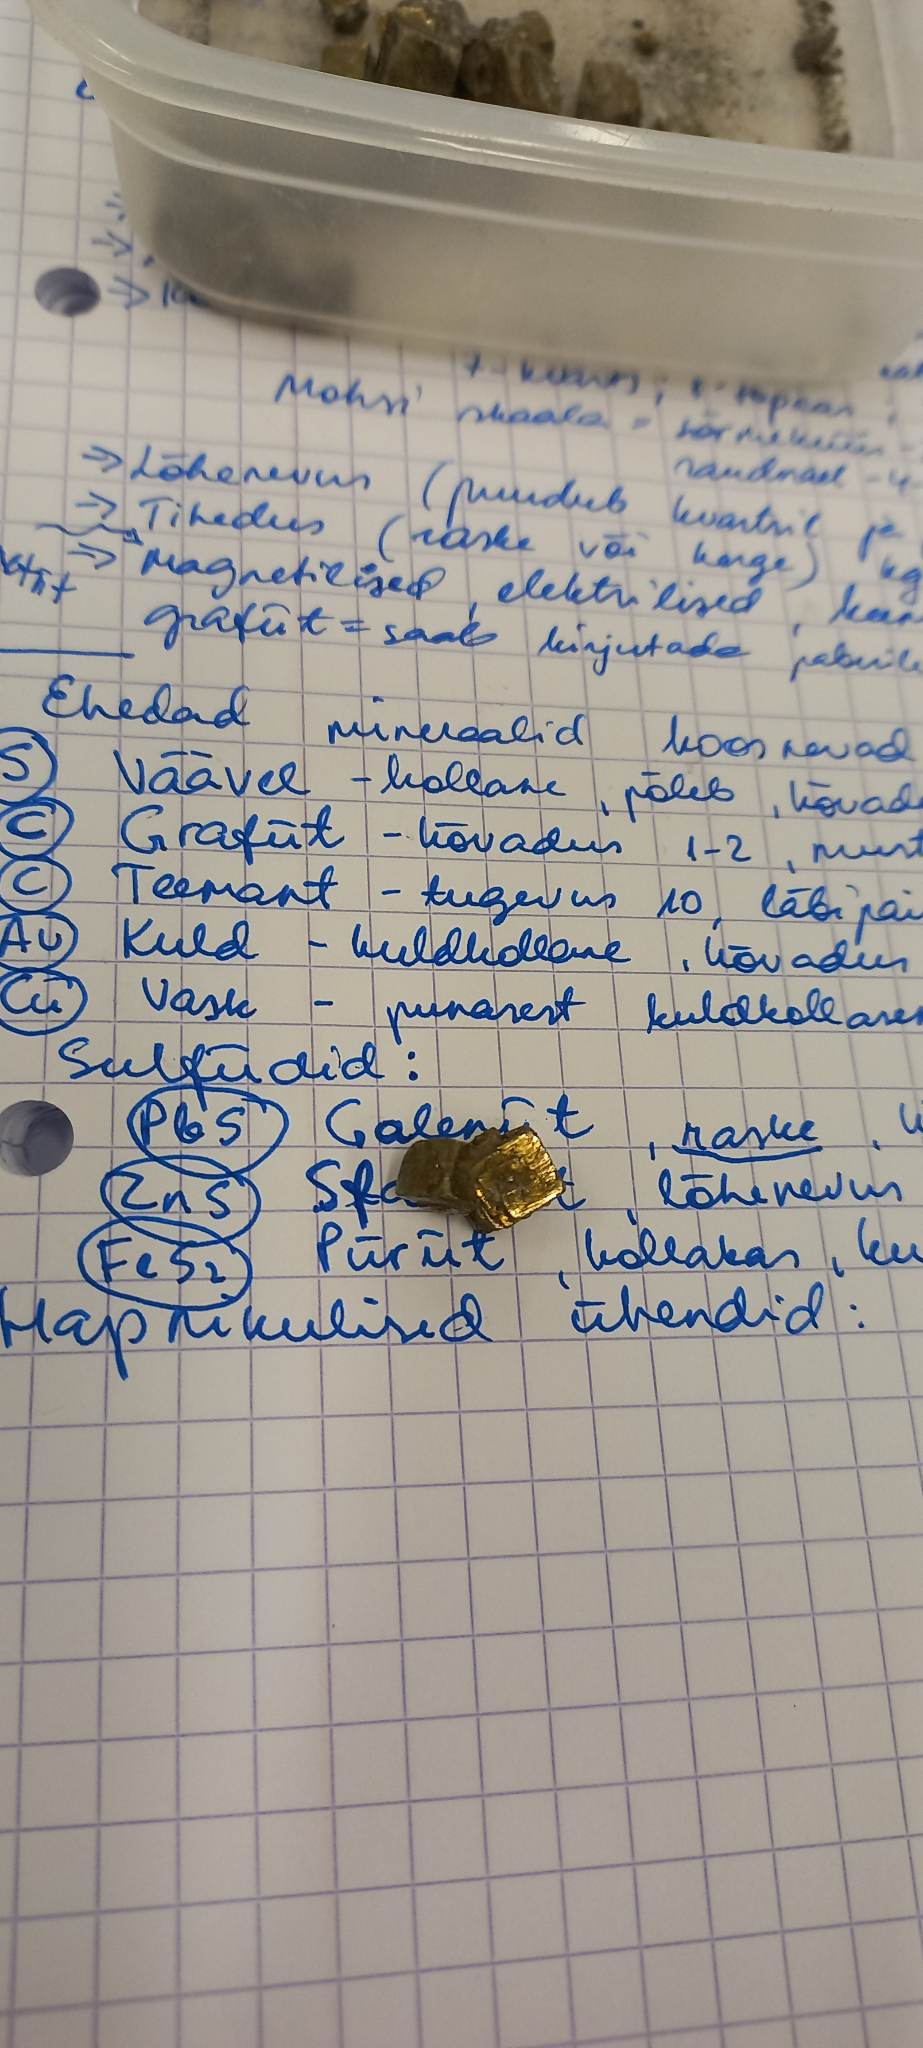 Mohsi skaala = sõrmeküüs -
raudnael - 4
⇒ Lõhenevus (puudub kvartsil ja
⇒ Tihedus (raske või kerge) kg
⇒ magnetilised, elektrilised,
grafiit = saab kirjutada
Ehedad mineraalid koosnevad
S Väävel - kollane, põleb, kõvadu
C Grafiit - kõvadus 1-2, must
C Teemant - tugevus 10, läbipai
Au Kuld - kuldkollane, kõvadus
Cu Vask - punasest kuldkollasen
Sulfiidid:
PbS Galeniit, raske,
ZnS , lõhenevus
FeS2 Püriit, kollakas, ku
Hapnikulised ühendid: